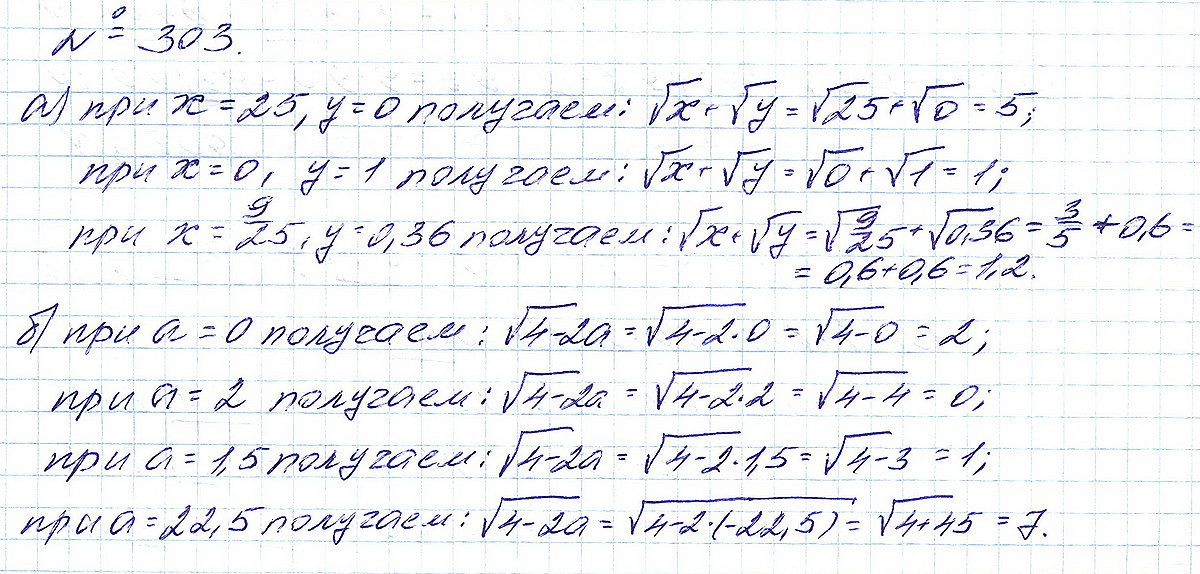 № 303.
а) при x = 25, y = 0 получаем: √x + √y = √25 + √0 = 5;
при x = 0, y = 1 получаем: √x + √y = √0 + √1 = 1;
при x = 9/25, y = 0,36 получаем: √x + √y = √9/25 + √0,36 = 3/5 + 0,6 =
= 0,6 + 0,6 = 1,2.
б) при a = 0 получаем: √4-2a = √4-2·0 = √4-0 = 2;
при a = 2 получаем: √4-2a = √4-2·2 = √4-4 = 0;
при a = 1,5 получаем: √4-2a = √4-2·1,5 = √4-3 = 1;
при a = 22,5 получаем: √4-2a = √4-2·(-22,5) = √4+45 = 7.